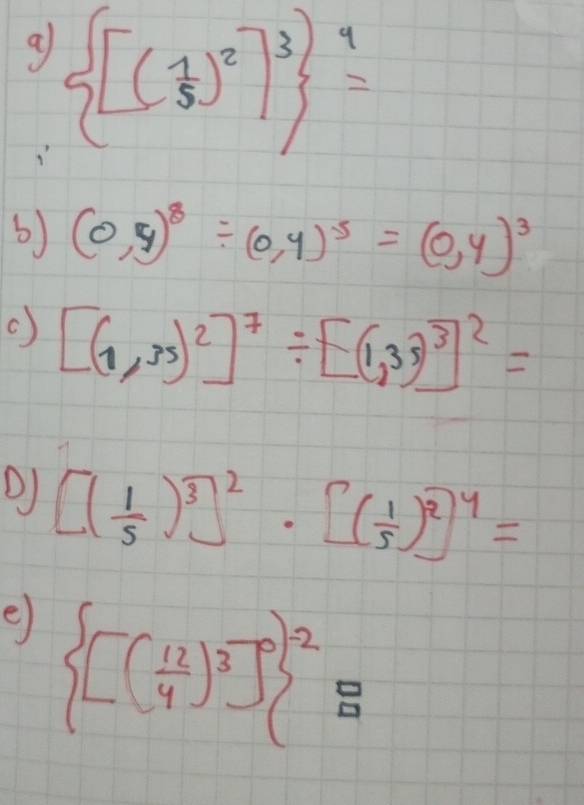 a) {[(1/5)²]³}⁴ =
b) (0,4)⁸ ÷ (0,4)⁵ = (0,4)³
c) [(1,35)²]⁷ ÷ [(1,35)³]² =
D) [(1/5)³]² · [(1/5)²]⁴ =
e) {[(12/4)³]⁰}⁻² =